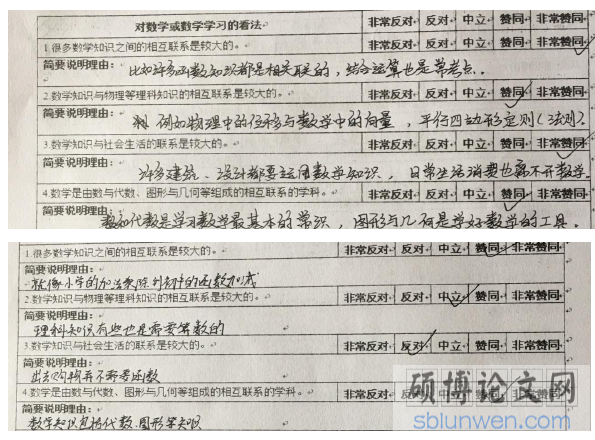 对数学或数学学习的看法 非常反对 反对 中立 赞同 非常赞同
1.很多数学知识之间的相互联系是较大的。 非常反对 反对 中立 赞同 非常赞同
简要说明理由:
比如许多函数知识都是相关联的，结合运算也是常考点.
2.数学知识与物理等理科知识的相互联系是较大的。 非常反对 反对 中立 赞同 非常赞同
简要说明理由:
例如物理中的位移与数学中的向量，平行四边形定则(法则).
3.数学知识与社会生活的联系是较大的。 非常反对 反对 中立 赞同 非常赞同
简要说明理由:
许多建筑、设计都要运用数学知识，日常生活消费也离不开数学.
4.数学是由数与代数、图形与几何等组成的相互联系的学科。 非常反对 反对 中立 赞同 非常赞同
简要说明理由:
数和代数是学习数学最基本的常识，图形与几何是学好数学的工具.
1.很多数学知识之间的相互联系是较大的。 非常反对 反对 中立 赞同 非常赞同
简要说明理由:
就像小学的加法乘除到初中的函数加减
2.数学知识与物理等理科知识的相互联系是较大的。 非常反对 反对 中立 赞同 非常赞同
简要说明理由:
理科知识有些也是需要算数的
3.数学知识与社会生活的联系是较大的。 非常反对 反对 中立 赞同 非常赞同
简要说明理由:
出去购物并不需要函数
4.数学是由数与代数、图形与几何等组成的相互联系的学科。 非常反对 反对 中立 赞同 非常赞同
简要说明理由:
数学知识包括代数.图形等知识
硕博论文网
sblunwen.com